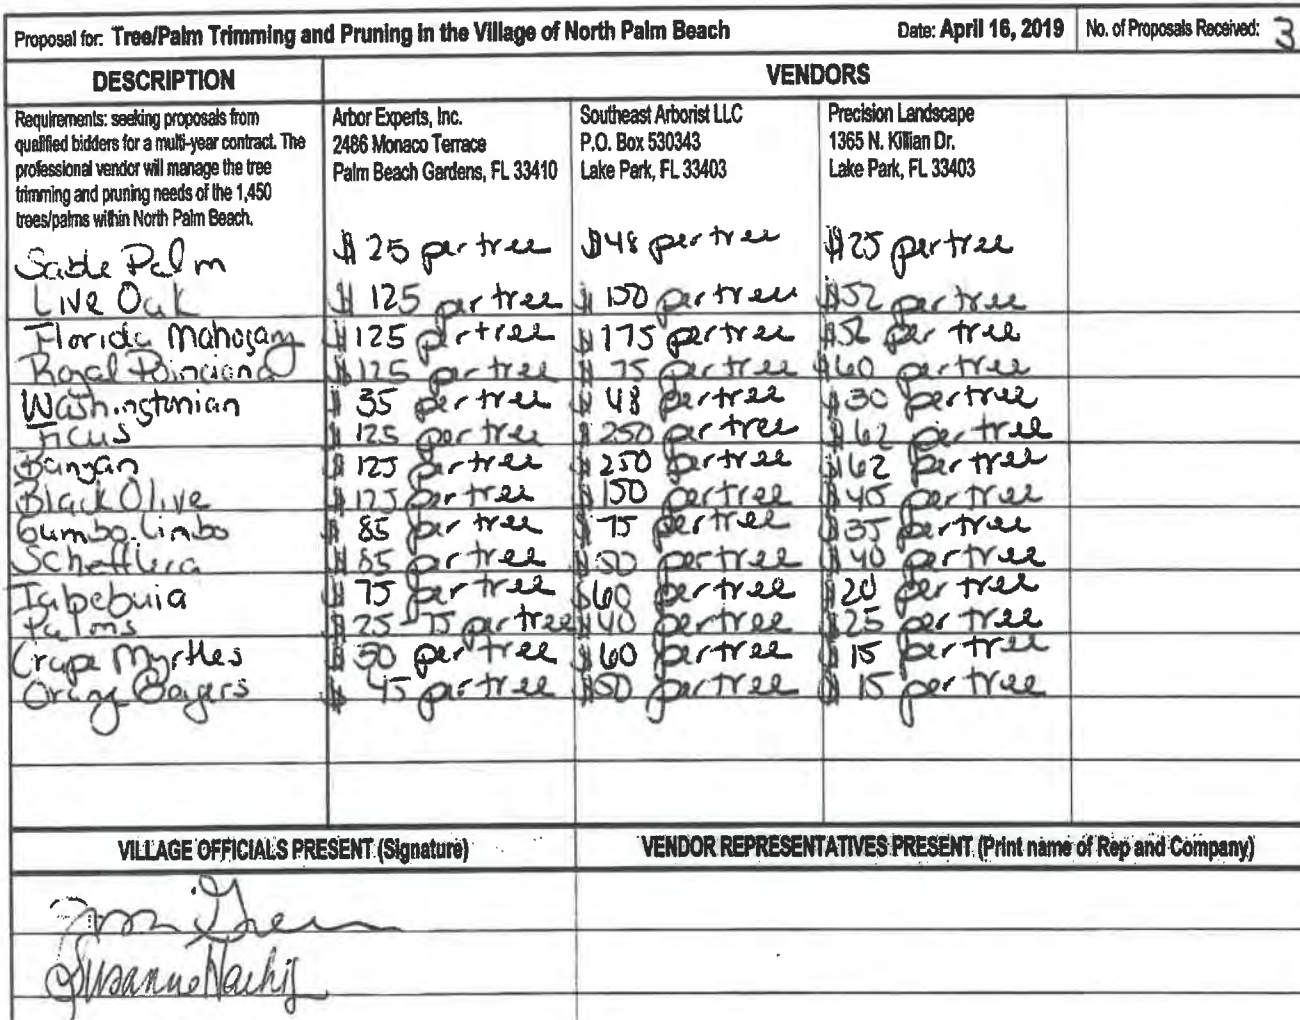 Proposal for: Tree/Palm Trimming and Pruning in the Village of North Palm Beach Date: April 16, 2019 No. of Proposals Received: 3
DESCRIPTION VENDORS
Requirements: seeking proposals from
qualified bidders for a multi-year contract. The
professional vendor will manage the tree
trimming and pruning needs of the 1,450
trees/palms within North Palm Beach.
Arbor Experts, Inc.
2486 Monaco Terrace
Palm Beach Gardens, FL 33410
Southeast Arborist LLC
P.O. Box 530343
Lake Park, FL 33403
Precision Landscape
1365 N. Killian Dr.
Lake Park, FL 33403
Sable Palm $ 25 per tree $48 per tree $25 per tree
Live Oak $ 125 per tree $ 150 per tree $52 per tree
Florida Mahogany $125 per tree $175 per tree per tree
Royal Poinciana $125 per tree $ 75 per tree $60 per tree
Washingtonian $ 35 per tree $ 48 per tree $30 per tree
Ficus $ 125 per tree $ 250 per tree $62 per tree
Banyan $ 125 per tree $ 250 per tree $62 per tree
Black Olive $ 125 per tree $ 150 per tree $45 per tree
Gumbo-Limbo $ 85 per tree $ 75 per tree $35 per tree
Schefflera $ 85 per tree $50 per tree $40 per tree
Tabebuia $ 75 per tree $60 per tree $20 per tree
Palms $ 25-75 per tree $40 per tree $25 per tree
Crape Myrtles $ 50 per tree $60 per tree $ 15 per tree
$ 45 per tree $50 per tree $ 15 per tree
VILLAGE OFFICIALS PRESENT (Signature) VENDOR REPRESENTATIVES PRESENT (Print name of Rep and Company)
Susanne